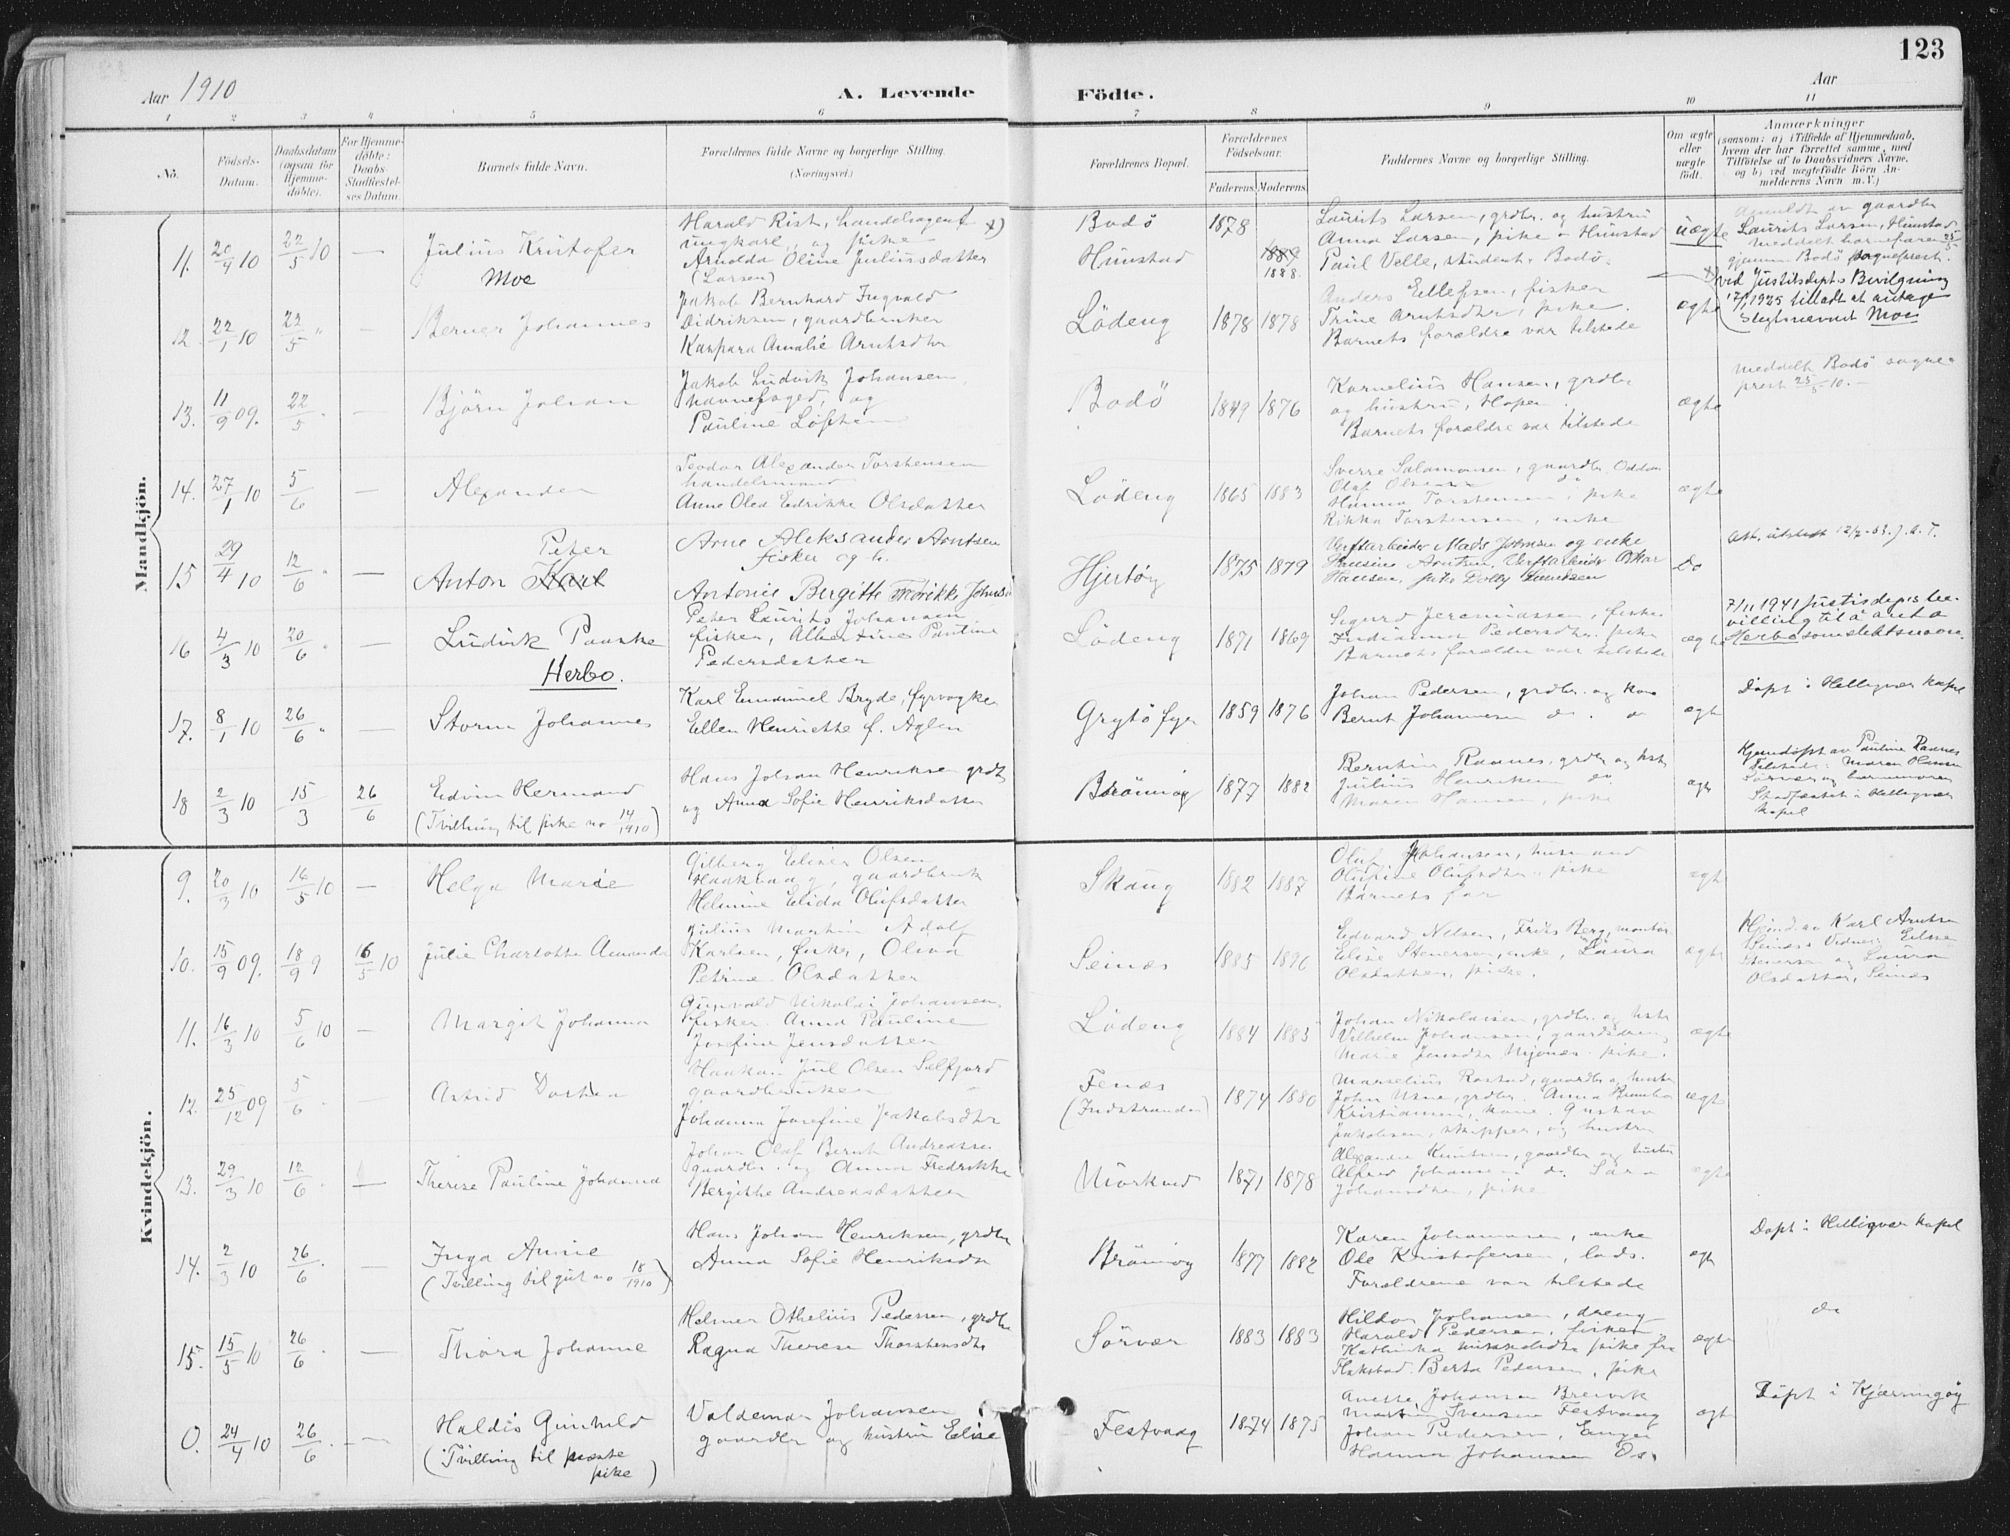 123
Aar 1910
A. Levende
Födte.
Aar
1 2 3 4 5 6 7 8 9 10 11
No.
Födsels-
Datum.
Daabsdatum
(ogsaa for
Hjemme-
döbte).
For Hjemme-
döbte:
Daabs-
Stadfæstel-
ses Datum.
Barnets fulde Navn.
Forældrenes fulde Navne og borgerlige Stilling.
(Næringsvei.)
Forældrenes Bopæl.
Forældrenes
Födselsaar.
Faderens. Moderens.
Faddernes Navne og borgerlige Stilling.
Om ægte
eller
uægte
födt.
Anmærkninger
(saasom: a) i Tilfælde af Hjemmedaab,
hvem der har forrettet samme, med
Tilföielse af to Daabsvidners Navne,
og b) ved uægtefödte Börn An-
melderens Navn m. V.)
Mandkjön.
11. 20/4 10 22/5 10 —
Julius Kristofer
Moe
Harald Rist, handelsagent x)
ungkarl, og pike
Arnolda Oline Juliusdatter
(Larsen)
Bodö
Hunstad
1878
1888.
Laurits Larsen, grdbr. og hustru
Anna Larsen, pike Hunstad
Paul Velle, student, Bodö.
uægte
Anmeldt av gaardbr
Laurits Larsen, Hunstad
meddelt barnefaren 25/5
gjennem Bodö sogneprest.
x) ved Justitsdepts Bevilgning
1925 tilladt at antage
slegtsnavnet Moe
12. 22/1 10 22/5 " —
Berner Johannes
Jakob Bernhard Ingvald
Didriksen, gaardbruker
Kaspara Amalie Arntsdtr
Lödeng
1878 1878
Anders Ellefsen, fisker
Trine Arntsdtr, pike.
Barnets forældre var tilstede
ægte
13. 11/9 09. 22/5 " —
Björn Johan
Jakob Ludvik Johansen,
havnefoged, og
Pauline Löften
Bodö
1849 1876
Kornelius Hansen, grdbr
og hustru, Hopen.
Barnets forældre var tilstede
ægte
meddelt Bodö sogne-
prest 25/5 10. —
14. 27/1 10 5/6 —
Alexander
Teodor Alexander Torstensen
handelsmand
Anne Olea Edrikke Olsdatter
Lödeng
1865 1883
Sverre Salamonsen, gaardbr. Oddan
Olaf Olsen do
Hanna Torstensen, pike
Rikka Torstensen, enke
ægte
15 29/4 10 12/6 " —
Peter
Anton Karl
Arne Aleksander Arntsen
fisker og h.
Antonie Birgitte Fredrikke
Hjertöy
1875 1879
Verftarbeider Mads Johnsen og enke
Hansine Arntsen, Verftarbeider Oskar
Hansen, pike Dolly
do
Att. utstedt
16 4/3 10 20/6 " —
Ludvik Paaske
Herbo.
Peter Laurits Johansen
fisker, Albertine Pauline
Pedersdatter
Lödeng
1871 1869
Sigurd Jeremiassen, fisker
Indianna Pedersdtr. pike
Barnets forældre var tilstede
ægte
7/11 1941 Justisdep.s be-
villing til å anta
Herbo som slektsnavn.
17. 8/1 10 26/6 " —
Storm Johannes
Karl Emanuel Bryde, fyrvogter
Ellen Henriette f. Aglen
Grytö fyr
1859 1876
Johan Pedersen, grdbr. og kone
Bernt Johannesen do. do
ægte
Döpt i Helligvær kapel
18 2/3 10 15/3 26/6
Edvin Hermand
(Tvilling til pike no 14/1910)
Hans Johan Henriksen grdbr
og Anna Sofie Henriksdatter
Bröinöy
1877 1882
Berntin Raanes, grdbr og hustr
Julius Henriksen do
Maren Hansen, pike
ægte
Hjemdöpt av Pauline Raanes
Tilstede: Maren Hansen
Sörvær og barnemoren
Stadfæstet i Helligvær
kapel
Kvindekjön.
9. 20/3 10 16/5 10 —
Helga Marie
Gilberg Eliser Olsen
Haakvaag, gaardbruk
Helmine Elida Olufsdatter
Skaug
1882 1887
Oluf Johansen, husmand
Olufine Olufsdtr, pike
Barnets far
ægte
10. 15/9 09. 18/9 9 16/5 10
Julie Charlotte Amanda
Julius Martin Adolf
Karlsen, fisker, Oliva
Petrine Olsdatter
Seines
1885 1890
Edvard Nilsen, Frits Berg, montör
Elise Stenersen, enke, Laura
Olsdatter, pike.
ægte
Hjemd. av Karl Arntsen
Seines. Vidner: Elise
Stenersen og Laura
Olsdatter, Seines
11. 16/3 10 5/6 10 —
Margit Johanna
Gunvald Nikolai Johansen,
fisker. Anna Pauline
Josefine Jensdatter
Lödeng
1884 1883
Johan Nikolaisen, grdbr. og hustr
Vilhelm Johansen, gaardsdreng
Marie Jensdtr pike.
ægte
12. 25/12 09 5/6 . —
Astrid Dorthea
Haakon Jul Olsen Salfjord
gaardbruker
Johanna Josefine Jakobsdtr
Fenæs
(Indstranden)
1874 1880
Marselius Rostad, gaardbr og hustr
John grdbr. Anna
Kristiansen, kone. Gustav
Jakobsen, skipper, og hustru
ægte
13. 29/3 10 12/6 . —
Therese Pauline Johanna
Johan Olaf Bernt Andreassen
gaardbr. og Anna Fredrikke
Bergitte Andreasdatter
Mörkved
1871 1878
Alexander Knutsen, gaardbr og hustru
Alfred Johansen do. Sara
Johansdtr, pike
ægte
14. 2/3 10 26/6 . —
Inga Annie
(Tvilling til gut no 18/1910)
Hans Johan Henriksen, grdbr
Anna Sofie Henriksdtr
Bröinöy
1877 1882
Karen Johannesen, enke
Ole Kristofersen, lods.
Forældrene var tilstede
ægte
Döpt i Helligvær kapel
15. 15/5 10 26/6 . —
Thora Johanne
Helmer Othelius Pedersen, grdbr
Ragna Therese Thorstensdtr
Sörvær
1883 1883
Hildor Johansen, dreng
Harald Pedersen, fisker
Kathinka Mikkelsdtr pike fra
Flakstad. Berta Pedersen, pike
ægte
do
0. 24/4 10 26/6 . —
Haldis Gunhild
(Tvilling til næste
pike)
Valdemar Johansen
gaardbr og hustru Elise
Festvaag
1874 1875
Anette Johansen Breivik
Martin Svensen Festvaag
Johan Pedersen,
Hanna Johansen Os.
ægte
Döpt i Kjærringöy